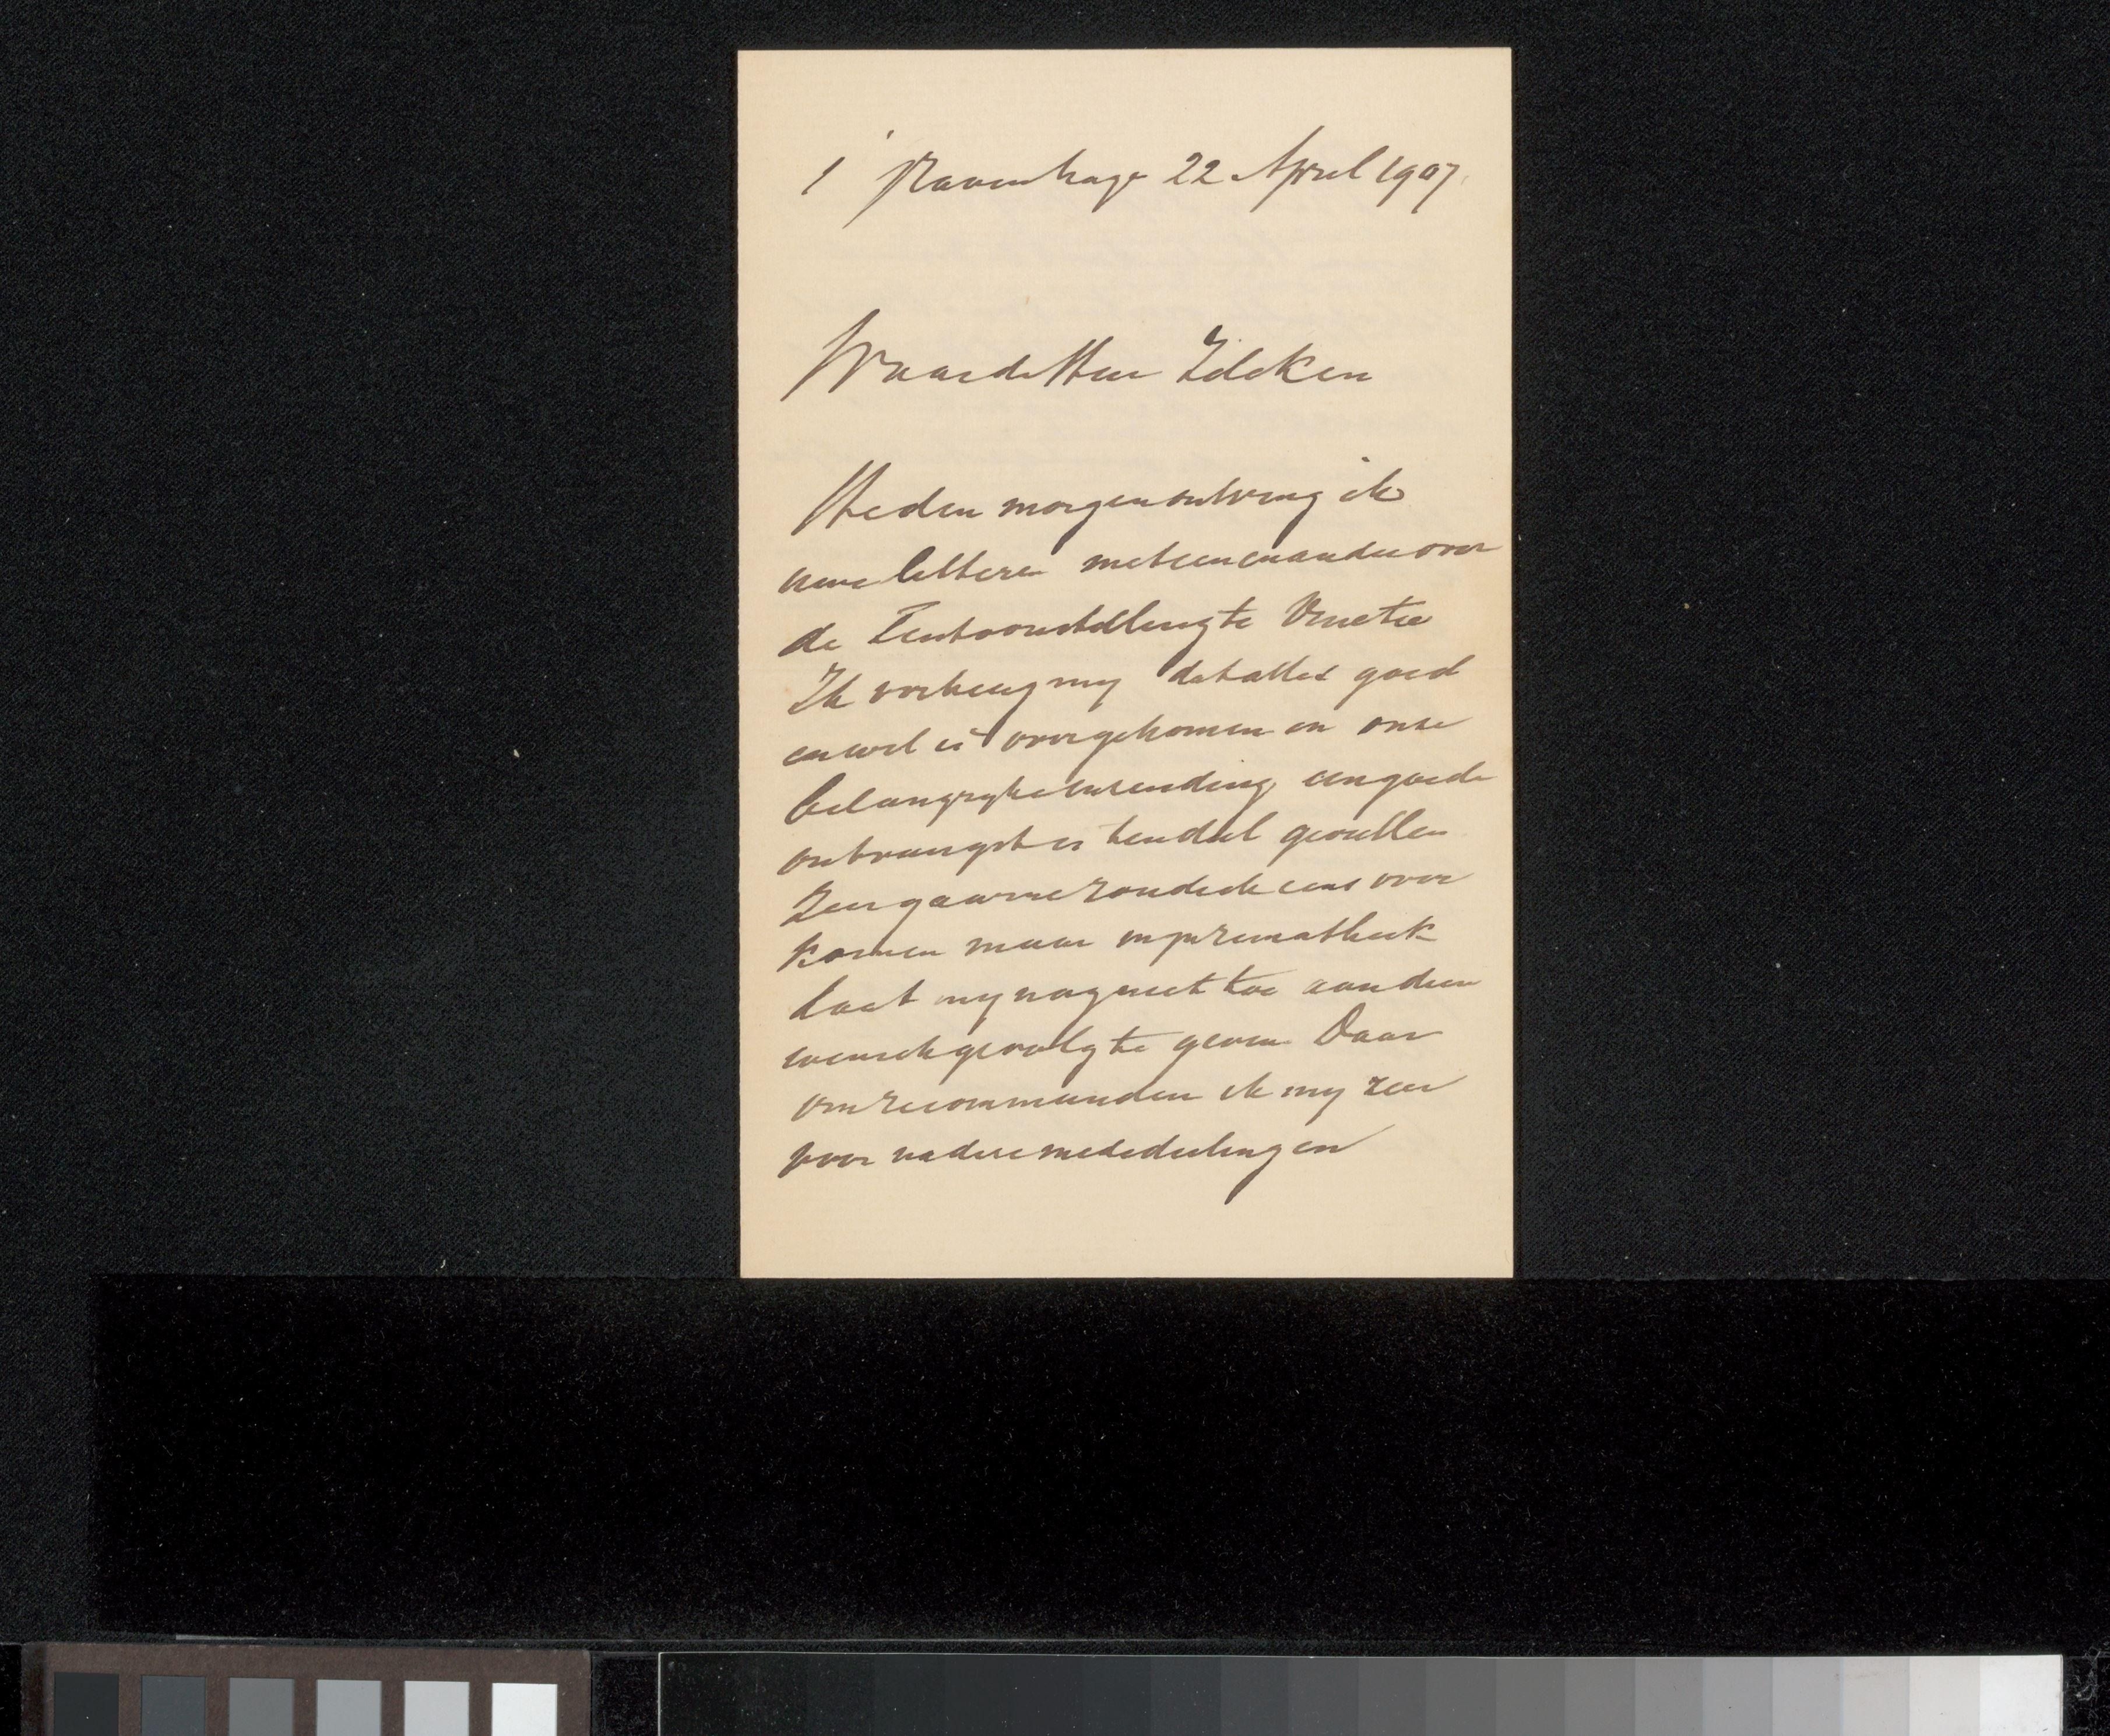 's Gravenhage 22 April 1907.
Waarde Heer Zilcken
Heden morgen ontving ik
uwe letteren met een en ander over
de Tentoonstelling te Venetie
Ik verheug my dat alles goed
en wel is overgekomen en onze
belangryke inzending een goede
ontvangst is ten deel gevallen
Zeer gaarne zoude ik eens over
komen maar myn
laat my nog niet toe aan dien
wensch gevolg te geven. Daar
om recommandeer ik my zeer
voor nadere mededeelingen